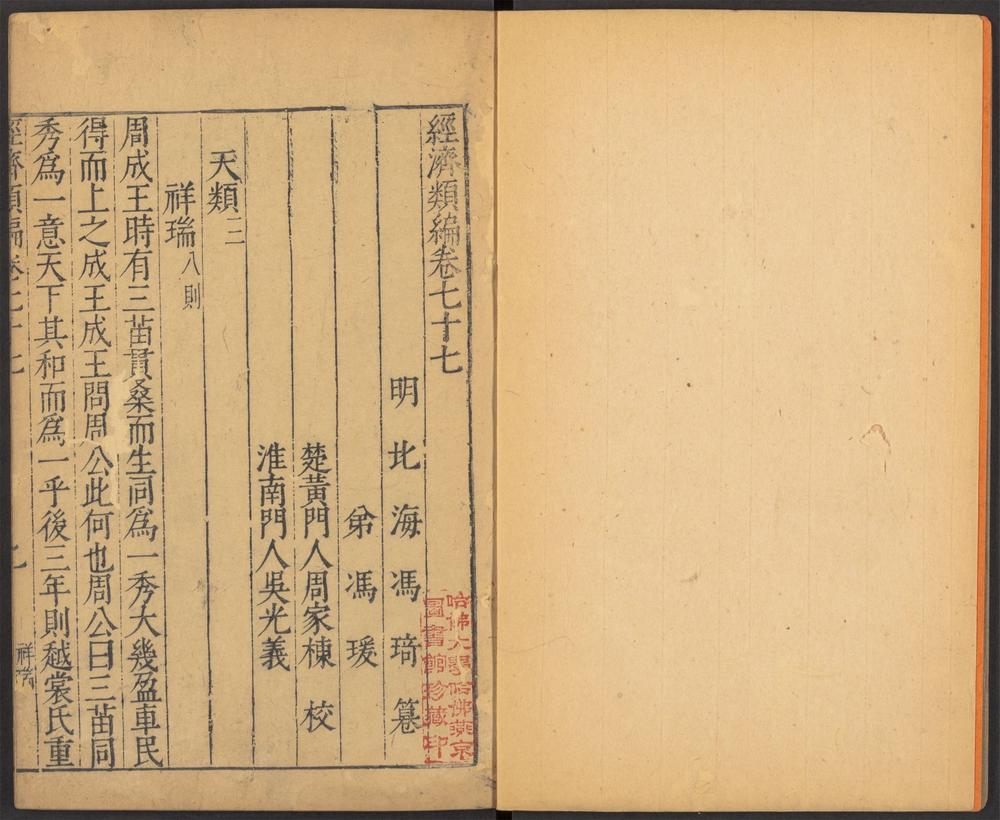 經濟類編卷七十七
明北海馮琦纂
弟馮瑗
楚黃門人周家棟校
淮南門人吳光義
天類二
祥瑞八則
周成王時有三苗貫桑而生同爲一秀大幾盈車民
得而上之成王成王問周公此何也周公曰三苗同
秀爲一意天下其和而爲一乎後三年則越裳氏重
經濟類編卷七十七
祥瑞
哈佛大學哈佛燕京
圖書館珍藏印